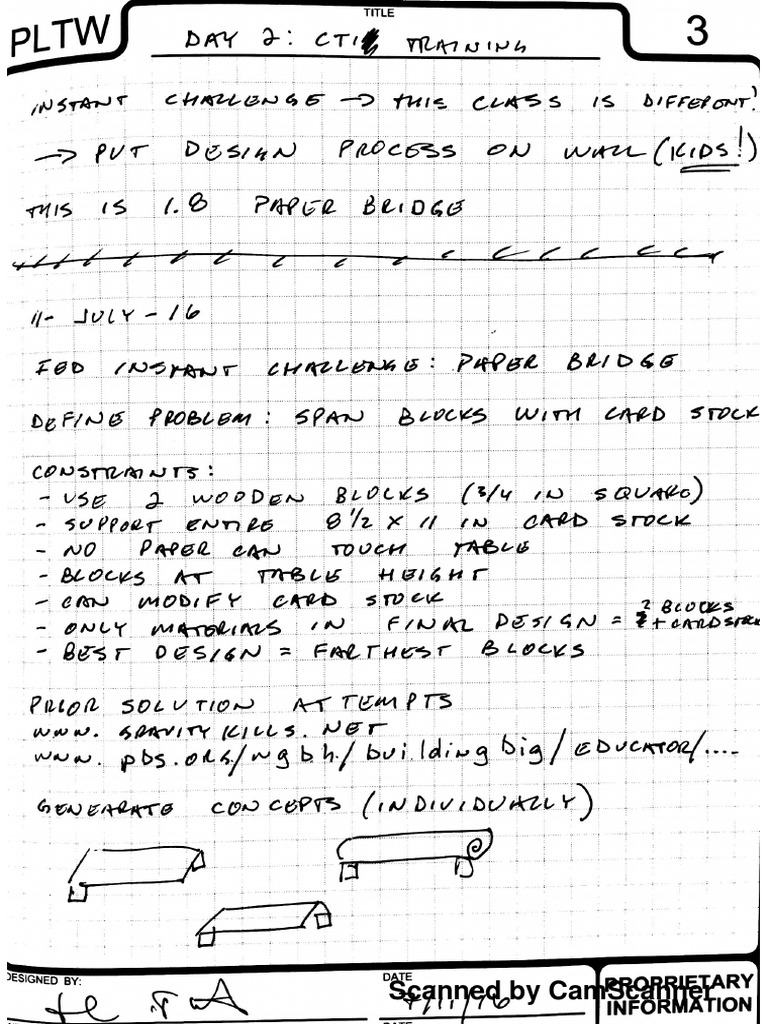 PLTW
TITLE
DAY 2: CTI TRAINING
3
INSTANT CHALLENGE → THIS CLASS IS DIFFERENT!
→ PUT DESIGN PROCESS ON WALL (KIDS!)
THIS IS 1.8 PAPER BRIDGE
11-JULY-16
IED INSTANT CHALLENGE: PAPER BRIDGE
DEFINE PROBLEM: SPAN BLOCKS WITH CARD STOCK
CONSTRAINTS:
- USE 2 WOODEN BLOCKS (3/4 IN SQUARE)
- SUPPORT ENTIRE 8 1/2 X 11 IN CARD STOCK
- NO PAPER CAN TOUCH TABLE
- BLOCKS AT TABLE HEIGHT
- CAN MODIFY CARD STOCK
- ONLY MATERIALS IN FINAL DESIGN = 2 BLOCKS + CARDSTOCK
- BEST DESIGN = FARTHEST BLOCKS
PRIOR SOLUTION ATTEMPTS
WWW. GRAVITYKILLS.NET
WWW. pbs.org/wgbh/buildingbig/EDUCATOR/....
GENEARATE CONCEPTS (INDIVIDUALLY)
DESIGNED BY:
DATE
7/11/16
Scanned by CamScanner
PROPRIETARY
INFORMATION
DATE